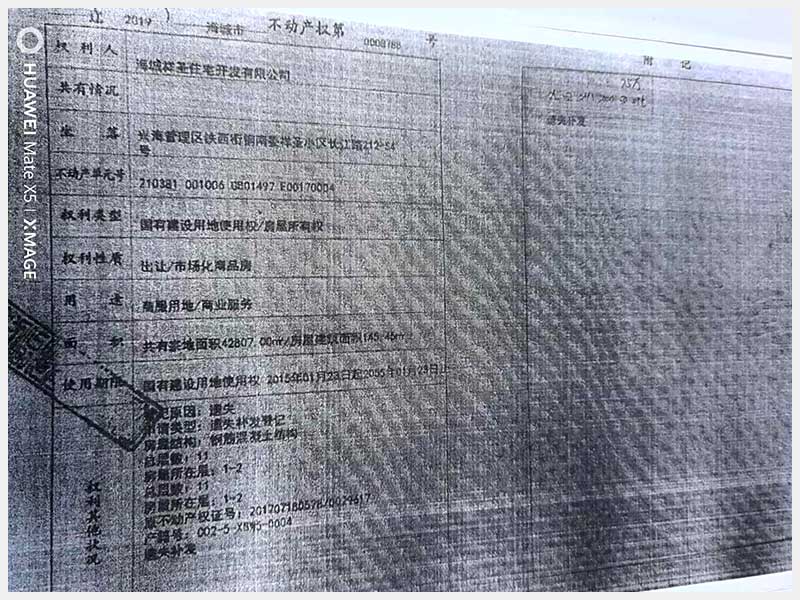 辽 2019 ） 海城市 不动产权第 0008788 号
附 记
权利人 海城祥圣住宅开发有限公司
共有情况
坐 落 兴海管理区铁西街铜南委祥圣小区长江路212-S4
号
不动产单元号 210381 001006 GB01497 F00170004
权利类型 国有建设用地使用权/房屋所有权
权利性质 出让/市场化商品房
用 途 商服用地/商业服务
面 积 共有宗地面积42807.00㎡/房屋建筑面积145.46㎡
使用期限 国有建设用地使用权 2015年01月23日起2055年01月23日止
权利其他状况
登记原因：遗失
申请类型：遗失补发登记
房屋结构：钢筋混凝土结构
总层数：11
房屋所在层：1-2
总层数：11
房屋所在层：1-2
原不动产权证号：201707180578/0029617
产籍号：002-5-
遗失补发
遗失补发
HUAWEI Mate X5 | XMAGE